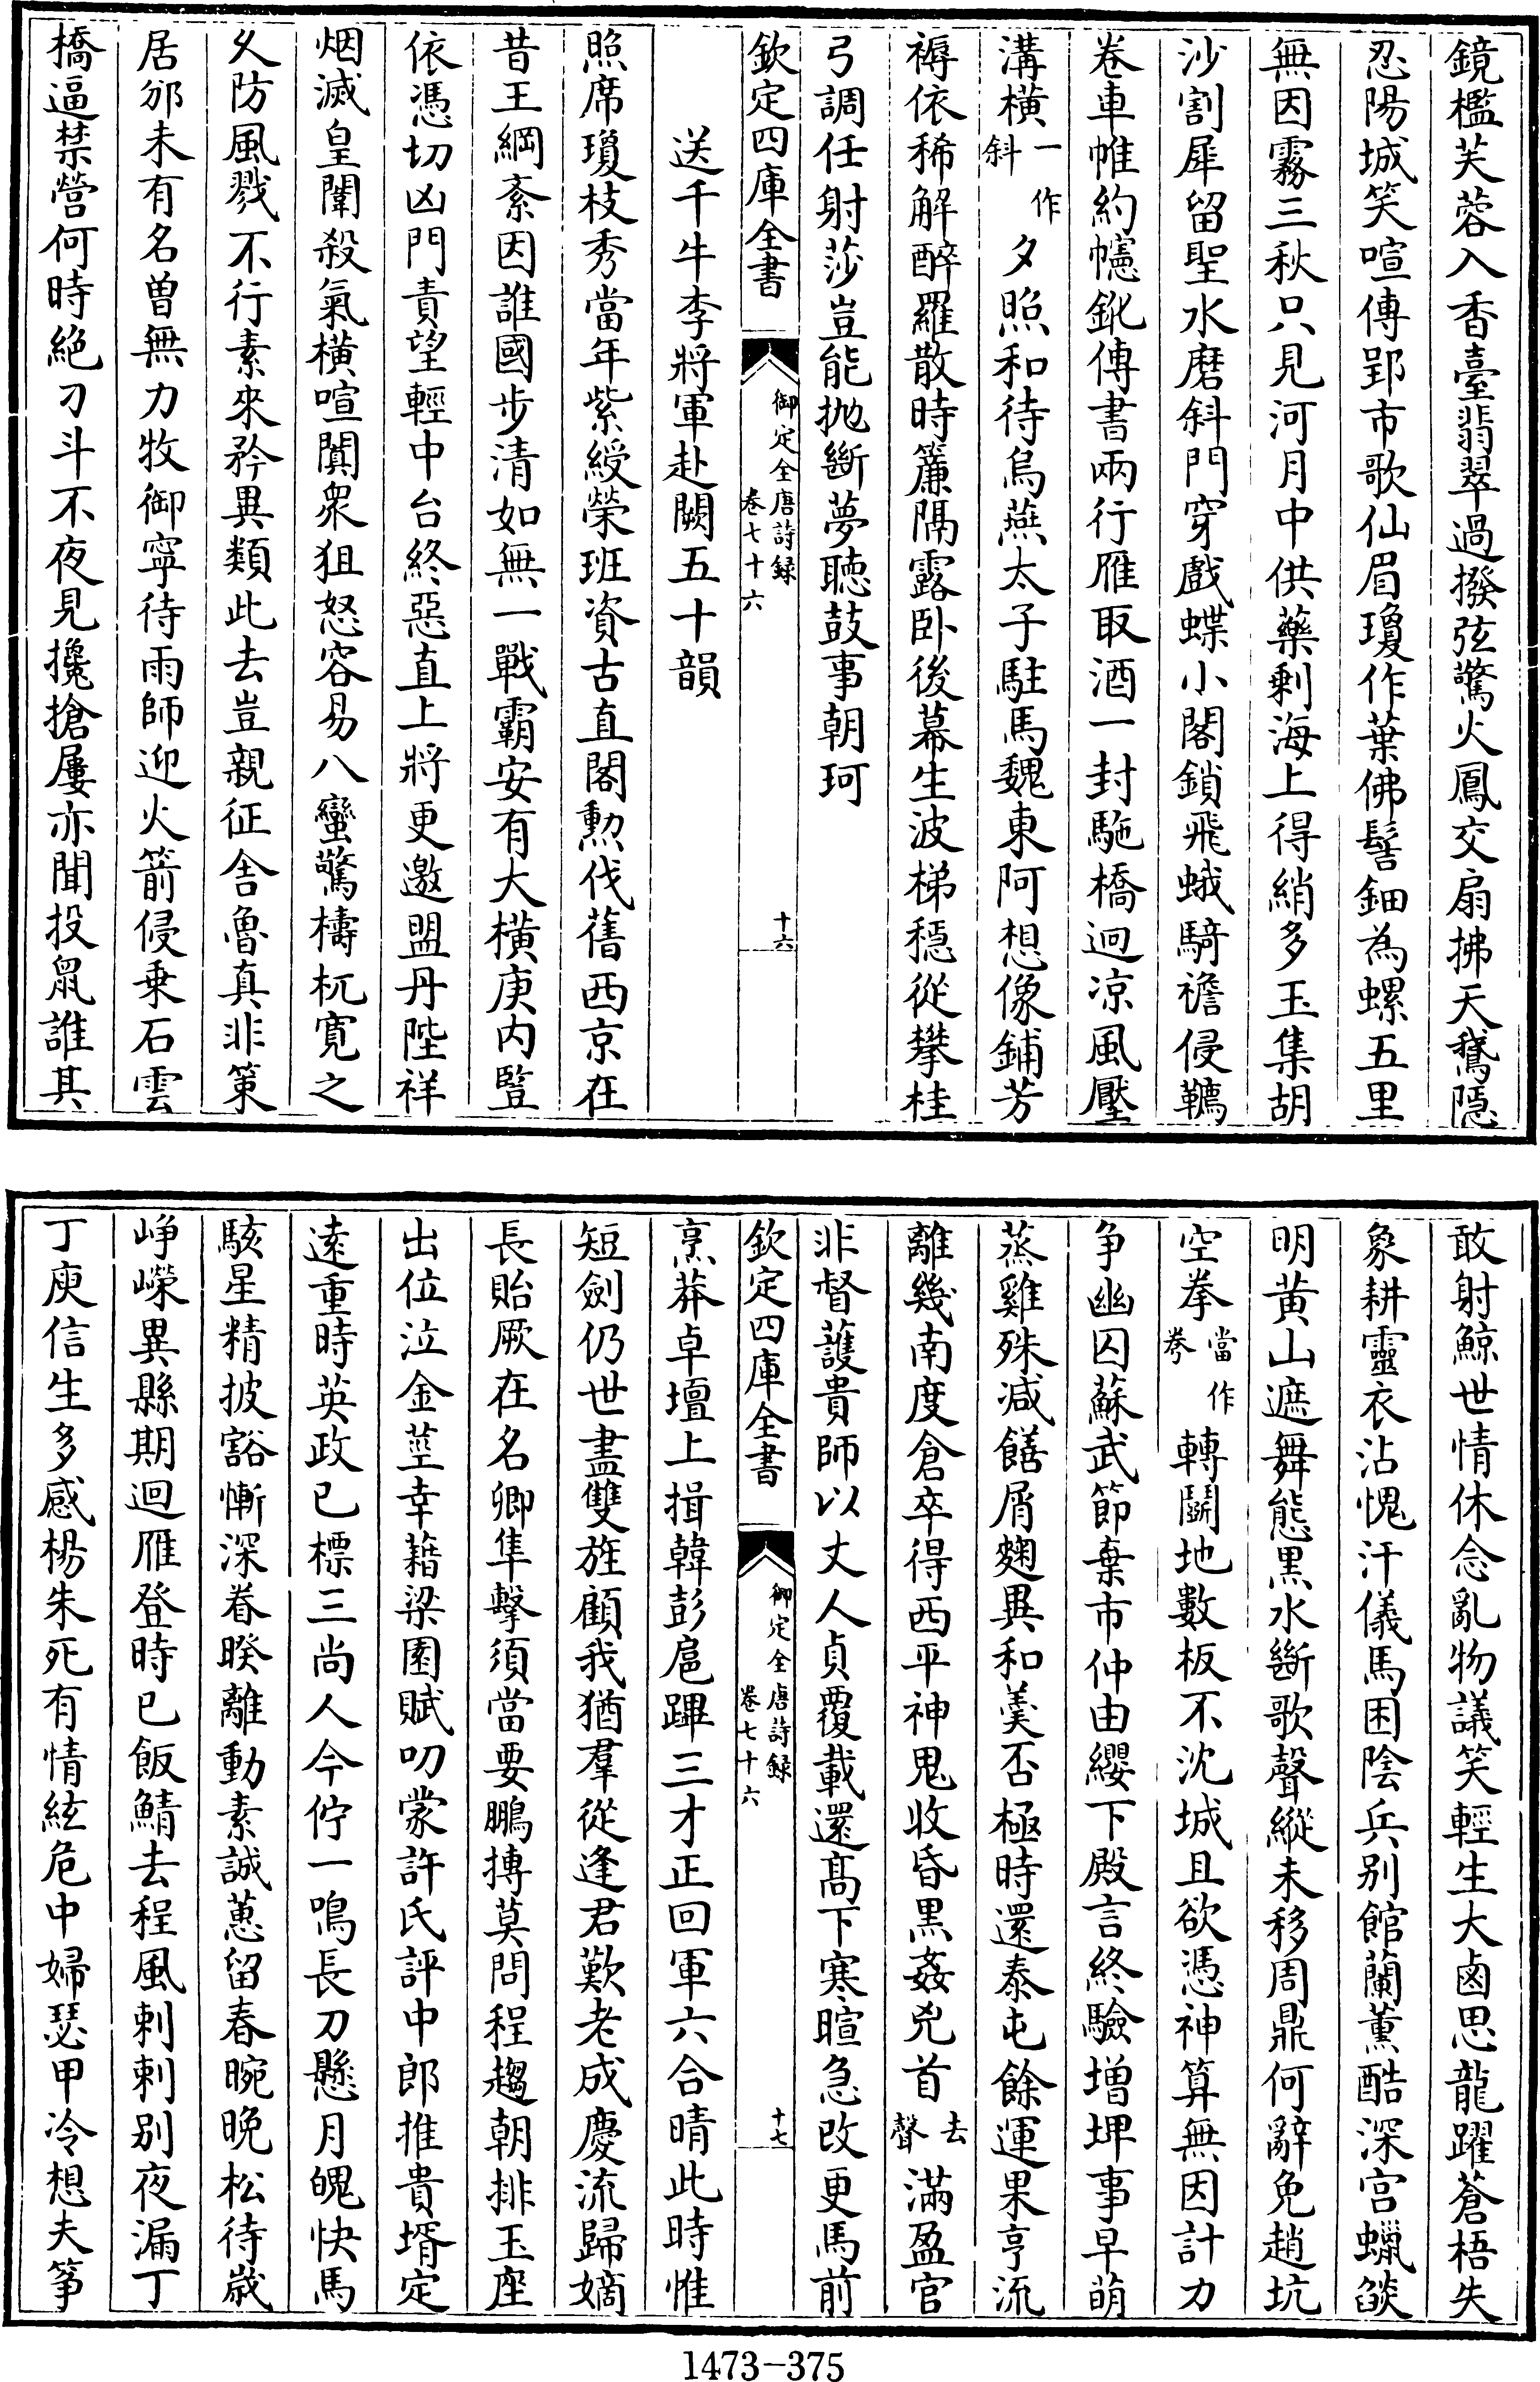 鏡檻芙蓉入香臺翡翠過撥弦驚火鳳交扇拂天鵝隱
忍陽城笑喧傳郢市歌仙眉瓊作葉佛髻鈿為螺五里
無因霧三秋只見河月中供藥剩海上得綃多玉集胡
沙割犀留聖水磨斜門穿戲蝶小閣鎖飛蛾騎襜侵韉
卷車帷約幰鈋傳書兩行雁取酒一封駞橋迥凉風壓
溝橫一作斜夕照和待烏燕太子駐馬魏東阿想像鋪芳
褥依稀解醉羅散時簾隔露卧後幕生波梯穩從攀桂
弓調任射莎豈能抛斷夢聽鼓事朝珂
欽定四庫全書 御定全唐詩録 卷七十六 十六
送千牛李將軍赴闕五十韻
照席瓊枝秀當年紫綬榮班資古直閣勲伐舊西京在
昔王綱紊因誰國步清如無一戰霸安有大橫庚内豎
依憑切凶門責望輕中台終惡直上將更邀盟丹陛祥
烟滅皇闈殺氣橫喧闐衆狙怒容易八蠻驚檮杌寬之
乆防風戮不行素來矜異類此去豈親征舎魯真非策
居邠未有名曽無力牧御寧待雨師迎火箭侵乗石雲
橋逼禁營何時絶刁斗不夜見攙搶屢亦聞投鼠誰其
敢射鯨世情休念亂物議笑輕生大鹵思龍躍蒼梧失
象耕靈衣沾愧汗儀馬困陰兵别館蘭薰酷深宫蠟燄
明黃山遮舞態黒水斷歌聲縱未移周鼎何辭免趙坑
空拳當作弮轉鬭地數板不沈城且欲憑神算無因計力
争幽囚蘇武節棄市仲由纓下殿言終驗增埤事早萌
蒸雞殊减饍屑麴異和羮否極時還泰屯餘運果亨流
離幾南度倉卒得西平神鬼收昏黒姦兇首去聲滿盈官
非督護貴師以丈人貞覆載還髙下寒暄急改更馬前
欽定四庫全書 御定全唐詩録 卷七十六 十七
烹莽卓壇上揖韓彭扈蹕三才正回軍六合晴此時惟
短劍仍世盡雙旌顧我猶羣從逢君歎老成慶流歸嫡
長貽厥在名卿隼擊須當要鵬搏莫問程趨朝排玉座
出位泣金莖幸藉梁園賦叨蒙許氏評中郎推貴壻定
遠重時英政已標三尚人今佇一鳴長刀懸月魄快馬
駭星精披豁慚深眷暌離動素誠蕙留春晼晚松待歳
峥嶸異縣期迴雁登時已飯鯖去程風剌剌别夜漏丁
丁庾信生多感楊朱死有情絃危中婦瑟甲冷想夫筝
1473-375